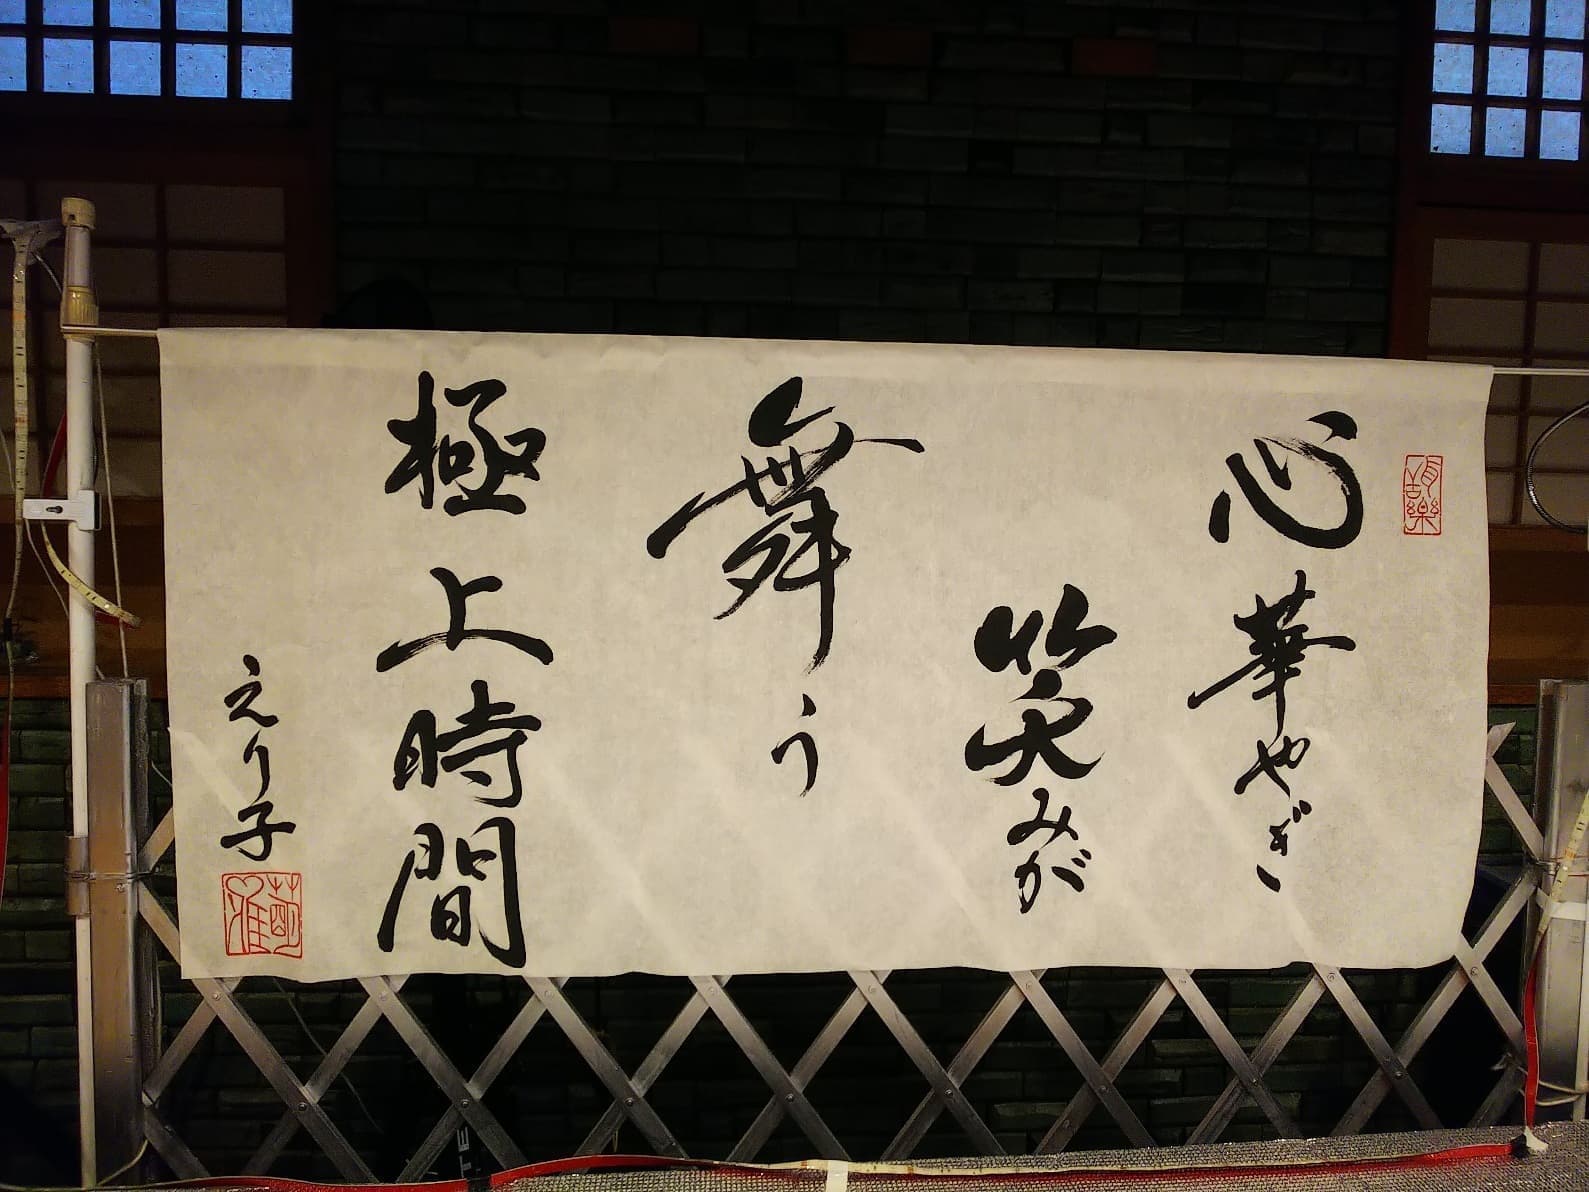 心華やぎ
笑みが
舞う
極上時間
えり子
TE